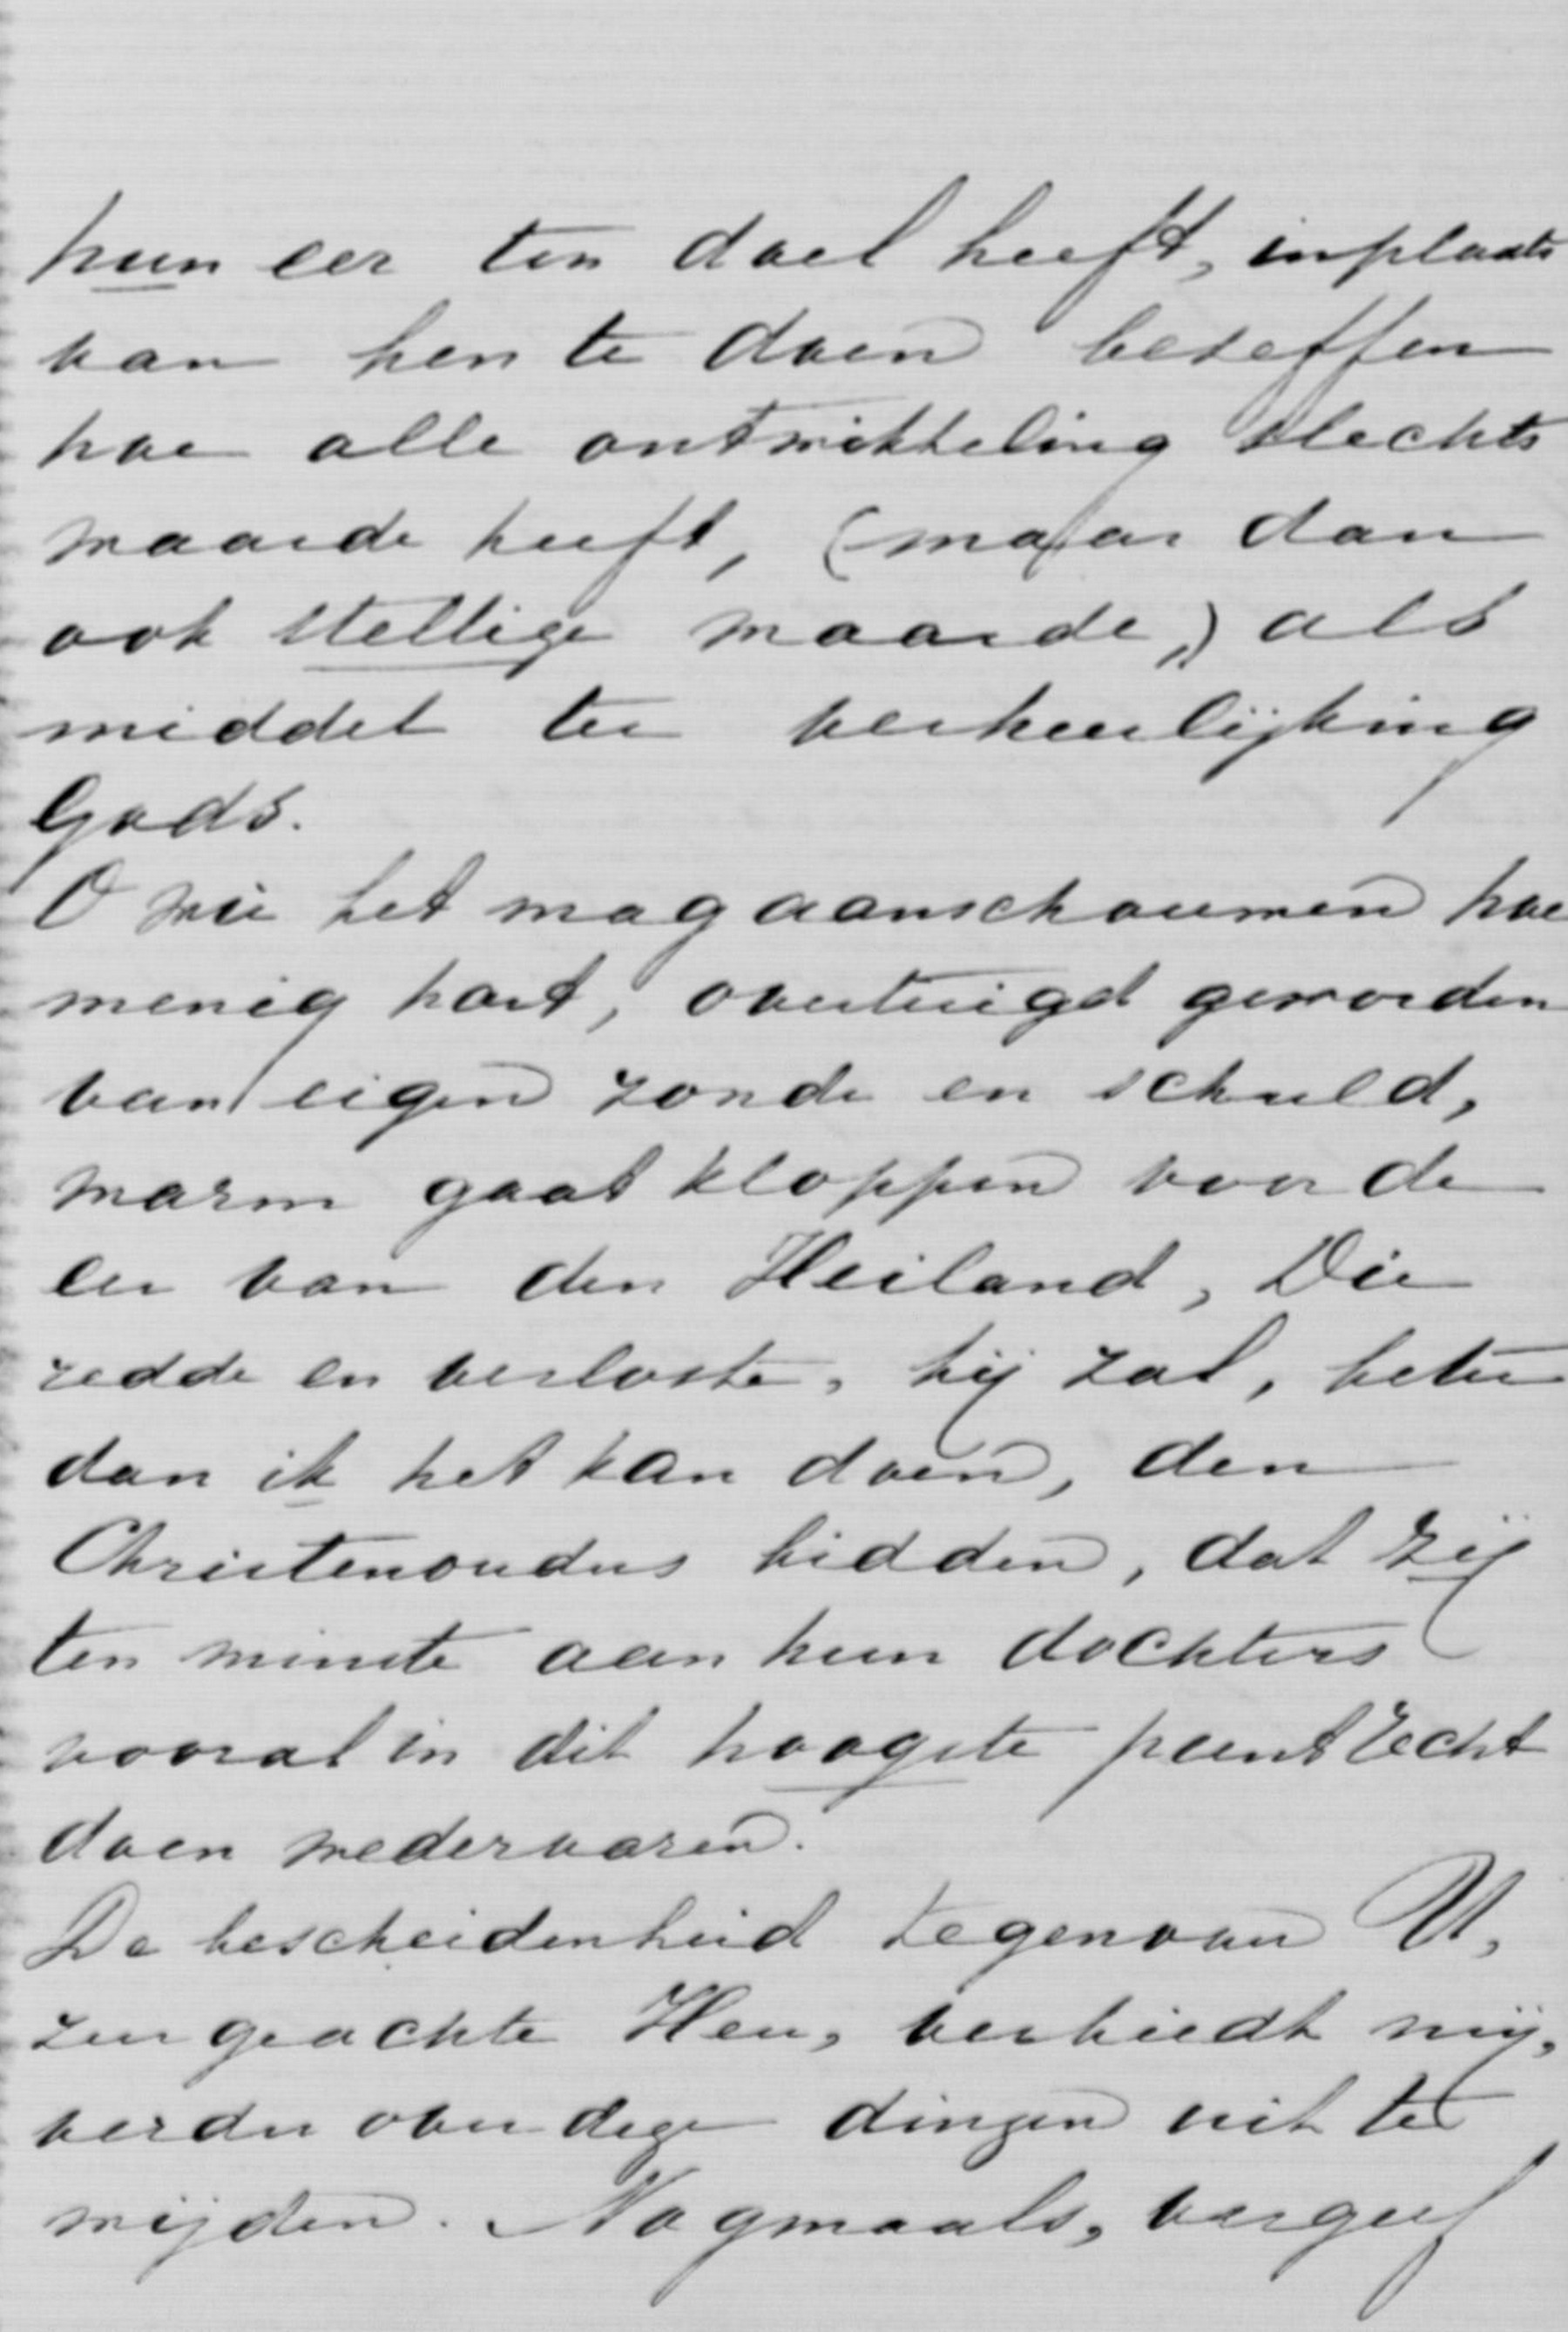 hun eer ten doel heeft, inplaats
van hen te doen beseffen
hoe alle ontwikkeling slechts
waarde heeft, (maar dan
ook stellige waarde,) als
middel ter verheerlijking
Gods.
O wie het mag aanschouwen hoe
menig hart, overtuigd geworden
van eigen zonde en schuld,
warm gaat kloppen voor de
eer van den Heiland, Die
redde en verloste, hij zal, beter
dan ik het kan doen, den
Christenouders bidden, dat zij
ten minste aan hun dochters
vooral in dit hoogste punt recht
doen wedervaren.
De bescheidenheid tegenover U,
zeer geachte Heer, verbiedt mij,
verder over deze dingen uit te
wijden. Nogmaals, vergeef